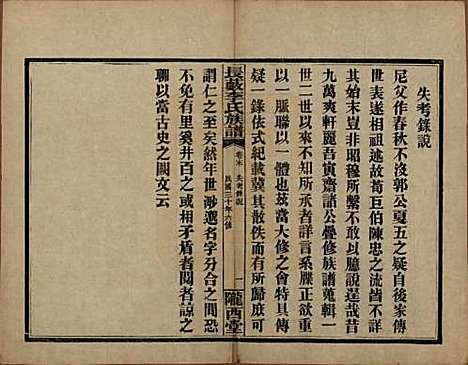 失考錄說
尼父作春秋不沒郭公夏五之疑自後家傳
世表遞相祖述故荀巨伯陳忠之流皆不詳
其始末豈非慎厥所繫不敢以臆說逞哉昔
九萬爽軒麗吾寅齋諸公疊修族譜蒐輯一
世二世不知所承者詳言系牒正欲後
以一脈聯以一體也茲當大修之會特具傳
疑一錄依式紀載冀其散佚而有所歸庶可
長鼓李氏族譜
卷末 失考錄說
民國三十年六修
一
隴西堂
謂仁之至矣然年世渺遠名字分合之間恐
不免有里奚井百之或相矛盾者閱者諒之
聊以當古史之闕文云